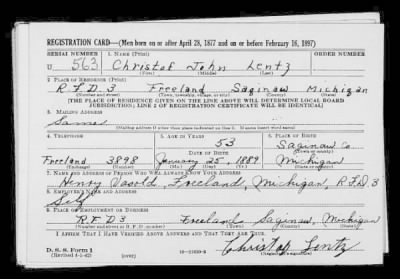 REGISTRATION CARD—(Men born on or after April 28, 1877 and on or before February 16, 1897)
SERIAL NUMBER 1. NAME (Print) ORDER NUMBER
U 563 Christof John Lentz
(First) (Middle) (Last)
2. PLACE OF RESIDENCE (Print)
R.F.D 3 Freeland Saginaw Michigan
(Number and street) (Town, township, village, or city) (County) (State)
[THE PLACE OF RESIDENCE GIVEN ON THE LINE ABOVE WILL DETERMINE LOCAL BOARD
JURISDICTION; LINE 2 OF REGISTRATION CERTIFICATE WILL BE IDENTICAL]
3. MAILING ADDRESS
Same
[Mailing address if other than place indicated on line 2. If same insert word same]
4. TELEPHONE 5. AGE IN YEARS 6. PLACE OF BIRTH
53 Saginaw Co.
DATE OF BIRTH (Town or county)
Freeland 3898 January 25, 1889 Michigan
(Exchange) (Number) (Mo.) (Day) (Yr.) (State or country)
7. NAME AND ADDRESS OF PERSON WHO WILL ALWAYS KNOW YOUR ADDRESS
Henry Vasold, Freeland, Michigan, R.F.D 3
8. EMPLOYER'S NAME AND ADDRESS
Self
9. PLACE OF EMPLOYMENT OR BUSINESS
R.F.D 3 Freeland Saginaw, Michigan
(Number and street or R. F. D. number) (Town) (County) (State)
I AFFIRM THAT I HAVE VERIFIED ABOVE ANSWERS AND THAT THEY ARE TRUE.
D. S. S. Form 1
(Revised 4-1-42) (over) Christof Lentz
(Registrant's signature)